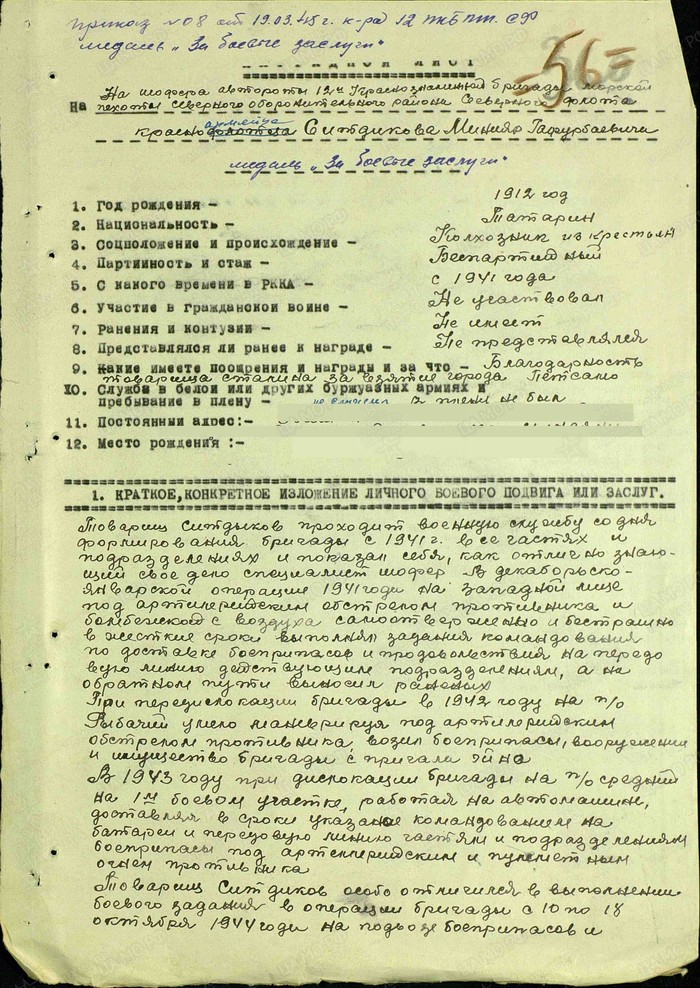 Приказ № 08 от 19.03.45г. к-ра 12 ПКБ МП. СФ
медаль „За боевые заслуги"
-56=
НАГРАДНОЙ ЛИСТ
На шофера автороты 12й Краснознаменной бригады морской
На пехоты Северного оборонительного района Северного флота
красноармейца Ситдикова Минияр Гафурбаевича
медаль „За боевые заслуги"
1. Год рождения - 1912 год
2. Национальность - Татарин
3. Соцположение и происхождение - Колхозник из крестьян
4. Партийность и стаж - Беспартийный
5. С какого времени в РККА - с 1941 года
6. Участие в гражданской войне - Не участвовал
7. Ранения и контузии - Не имеет
8. Представлялся ли ранее к награде - Не представлялся
9. Какие имеете поощрения и награды и за что - Благодарность
товарища Сталина за взятие города Петсамо
10. Служба в белой или других буржуазных армиях и
пребывание в плену - не служил В плену не был
11. Постоянный адрес:-
12. Место рождения :-
1. КРАТКОЕ, КОНКРЕТНОЕ ИЗЛОЖЕНИЕ ЛИЧНОГО БОЕВОГО ПОДВИГА ИЛИ ЗАСЛУГ.
Товарищ Ситдыков проходит военную службу со дня
формирования бригады с 1941г. в ее частях и
подразделениях и показал себя, как отлично знаю-
щий свое дело специалист шофер В декаборьско-
январской операции 1941 годи на западной лице
под артилерийским обстрелом противника и
бомбежкой с воздуха самоотверженно и бестрашно
в жесткие сроки выполнял задания командования
по доставке боеприпасов и продовольствия на передо
вую линию действующим подразделениям, а на
обратном пути вывозил раненых
При передислокации бригады в 1942 году на п/о
Рыбачий умело маневрируя под артилерийским
обстрелом противника, возил боеприпасы, вооружении
и имущество бригады с причала Эйна
В 1943 году при дислокации бригады на п/о средний
на 1м боевом участке, работая на автомашине,
доставлял в сроки указаные командованием на
батареи и передовую линию частям и подразделениям
боеприпасы под артиллерийским и пулеметным
огнем противника
Товарищ Ситдиков особо отличился в выполнении
боевого задания в операции бригады с 10 по 18
октября 1944 годи на подвозе боеприпасов и